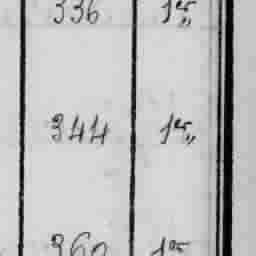 336 1er „
344 1er „
360 1er